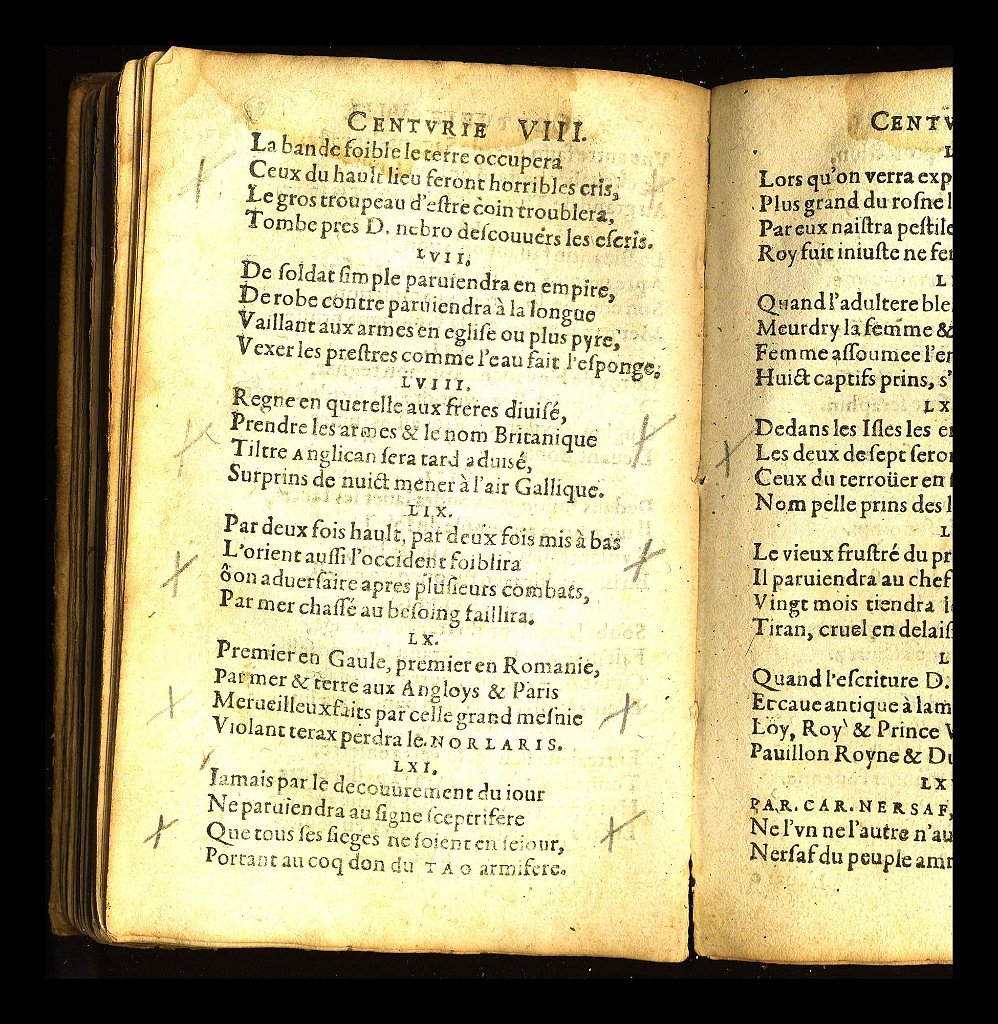 CENTVRIE VIII.
La bande foible le terre occupera
Ceux du hault lieu feront horribles cris,
Le gros troupeau d'eſtre coin troublera,
Tombe pres D. nebro deſcouuers les eſcris.
LVII.
De ſoldat ſimple paruiendra en empire,
De robe contre paruiendra à la longue
Vaillant aux armes en egliſe ou plus pyre,
Vexer les preſtres comme l'eau fait l'eſponge.
LVIII.
Regne en querelle aux freres diuiſé,
Prendre les armes & le nom Britanique
Tiltre Anglican ſera tard aduisé,
Surprins de nuict mener à l'air Gallique.
LIX.
Par deux fois hault, par deux fois mis à bas
L'orient auſſi l'occident foiblira
Son aduerſaire apres pluſieurs combats,
Par mer chaſſé au beſoing faillira.
LX.
Premier en Gaule, premier en Romanie,
Par mer & terre aux Angloys & Paris
Merueilleux faits par celle grand meſnie
Violant terax perdra le NORLARIS.
LXI.
Jamais par le decouurement du iour
Ne paruiendra au ſigne ſceptrifere
Que tous ſes ſieges ne ſoient en ſeiour,
Portant au coq don du TAO armifere.
CENTV
L
Lors qu'on verra exp
Plus grand du roſne l
Par eux naiſtra peſtile
Roy fuit iniuſte ne fe
L
Quand l'adultere ble
Meurdry la femme &
Femme aſſoumee l'e
Huict captifs prins, s'
LX
Dedans les Iſles les e
Les deux de ſept ſero
Ceux du terroüer en
Nom pelle prins des l
L
Le vieux fruſtré du pr
Il paruiendra au chef
Vingt mois tiendra l
Tiran, cruel en delaiſ
L
Quand l'eſcriture D.
Et caue antique à lam
Loy, Roy & Prince V
Pauillon Royne & Du
LX
PAR. CAR. NERSAF,
Ne l'vn ne l'autre n'au
Nerſaf du peuple am